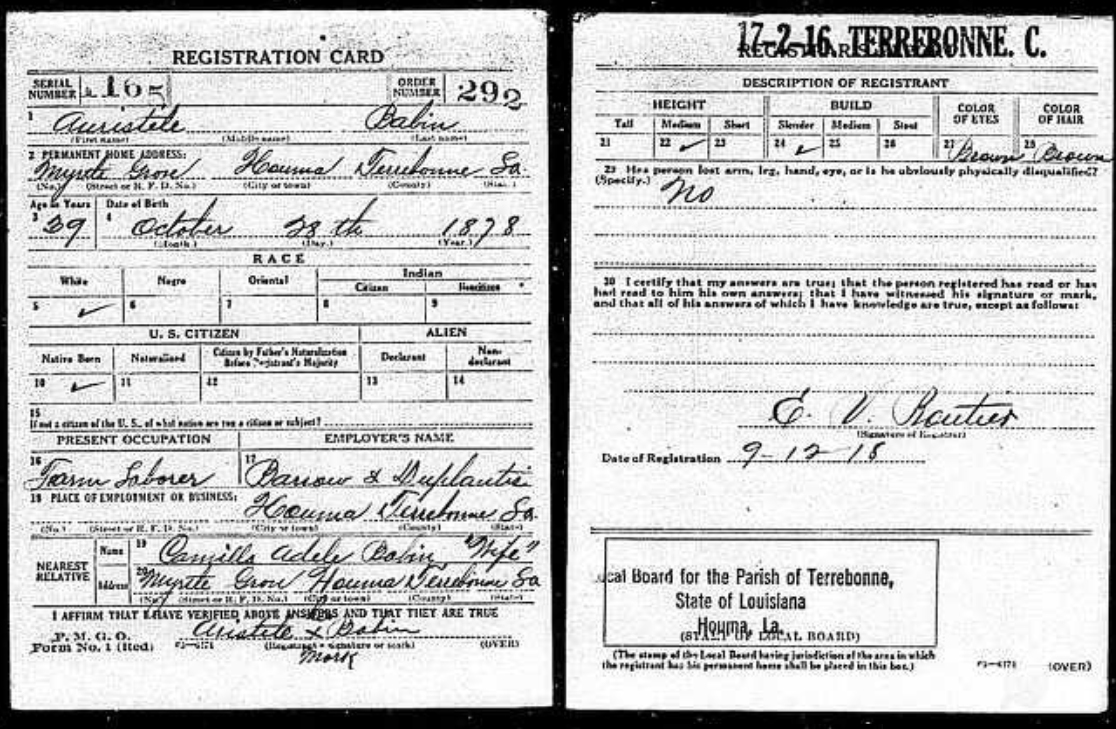 REGISTRATION CARD
SERIAL NUMBER 165 ORDER NUMBER 292
1 Auristele Babin
(First name) (Middle name) (Last name)
2 PERMANENT HOME ADDRESS:
Myrtle Grove Houma Terrebonne La.
(No.) (Street or R. F. D. No.) (City or town) (County) (State)
Age in Years Date of Birth
3 39 4 October 28th 1878
(Month.) (Day.) (Year.)
RACE
White Negro Oriental Indian
Citizen Noncitizen
5 ✓ 6 7 8 9
U. S. CITIZEN ALIEN
Native Born Naturalized Citizen by Father's Naturalization Before Registrant's Majority Declarant Non-declarant
10 ✓ 11 12 13 14
15
If not a citizen of the U. S., of what nation are you a citizen or subject?
PRESENT OCCUPATION EMPLOYER'S NAME
16 Farm Laborer 17 Barrow & Duplantis
18 PLACE OF EMPLOYMENT OR BUSINESS:
Houma Terrebonne La.
(No.) (Street or R. F. D. No.) (City or town) (County) (State)
NEAREST RELATIVE Name 19 Camilla Adele Babin "Wife"
Address 20 Myrtle Grove Houma Terrebonne La
(No.) (Street or R. F. D. No.) (City or town) (County) (State)
I AFFIRM THAT I HAVE VERIFIED ABOVE ANSWERS AND THAT THEY ARE TRUE
P. M. G. O.
Form No. 1 (Red) Aristele x Babin
(Registrant's signature or mark) (OVER)
mark
17-2-16 TERREBONNE. C.
DESCRIPTION OF REGISTRANT
HEIGHT BUILD COLOR OF EYES COLOR OF HAIR
Tall Medium Short Slender Medium Stout
21 22 ✓ 23 24 ✓ 25 26 27 Brown 28 Brown
29 Has person lost arm, leg, hand, eye, or is he obviously physically disqualified?
(Specify.) No
30 I certify that my answers are true; that the person registered has read or has
had read to him his own answers; that I have witnessed his signature or mark,
and that all of his answers of which I have knowledge are true, except as follows:
E. V. Routier
(Signature of Registrar)
Date of Registration 9-12-18
Local Board for the Parish of Terrebonne,
State of Louisiana
Houma, La.
(STAMP OF LOCAL BOARD)
(The stamp of the Local Board having jurisdiction of the area in which
the registrant has his permanent home shall be placed in this box.)
(OVER)